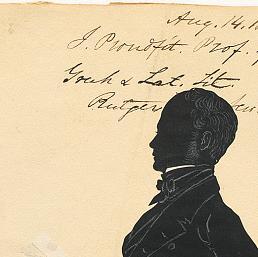 Aug. 14. 1
J. Proudfit. Prof. of
Greek & Lat. Lit.
Rutger